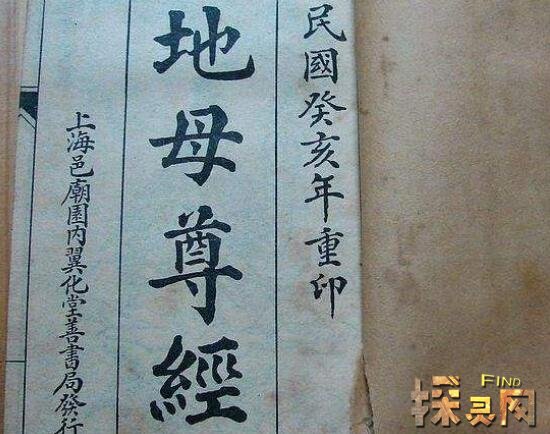 民國癸亥年重印
地母尊經
上海邑廟園內翼化堂善書局發行
FIND
探灵网